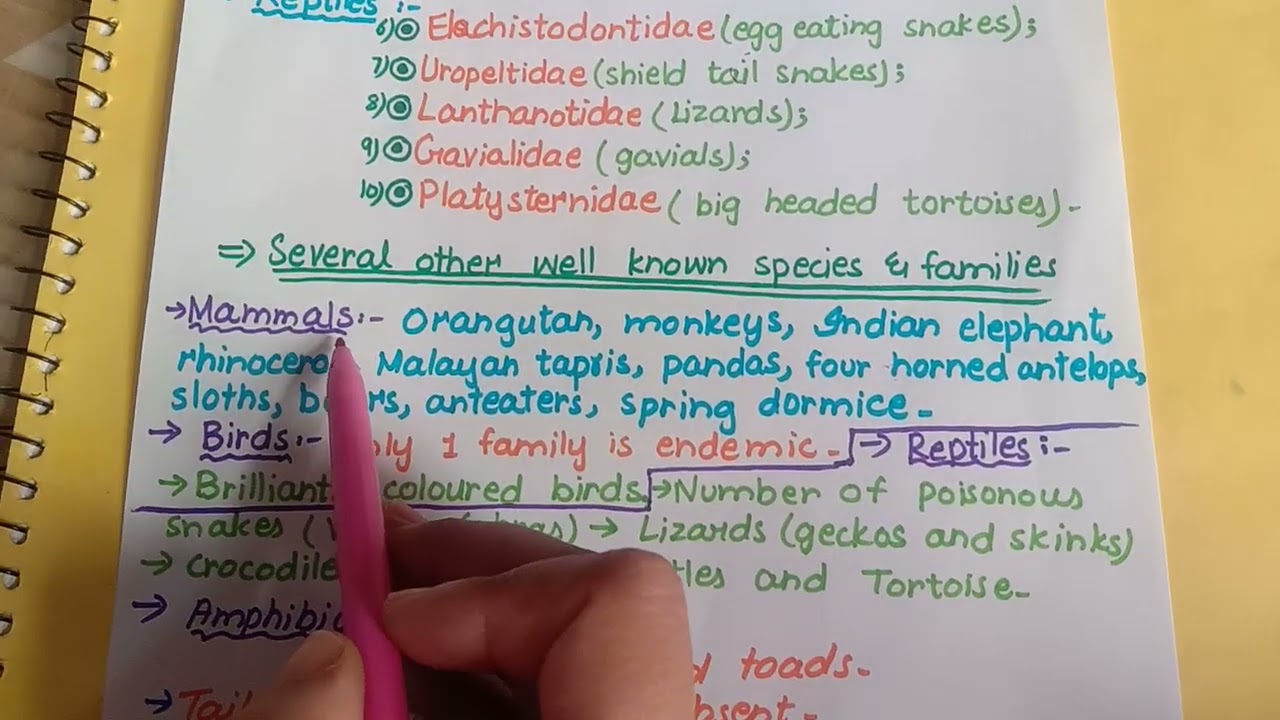 Reptiles :-
6) Elachistodontidae (egg eating snakes);
7) Uropeltidae (shield tail snakes);
8) Lanthanotidae (Lizards);
9) Gavialidae (gavials);
10) Platysternidae (big headed tortoises).-
⇒ Several other well known species & families
→Mammals:- Orangutan, monkeys, Indian elephant,
Malayan tapris, pandas, four horned antelops,
sloths, anteaters, spring dormice-
→ Birds:- 1 family is endemic.-
→ Reptiles:-
→ coloured birds
→Number of poisonous
snakes → Lizards (geckos and skinks)
→ and Tortoise-
→
toads.-
→